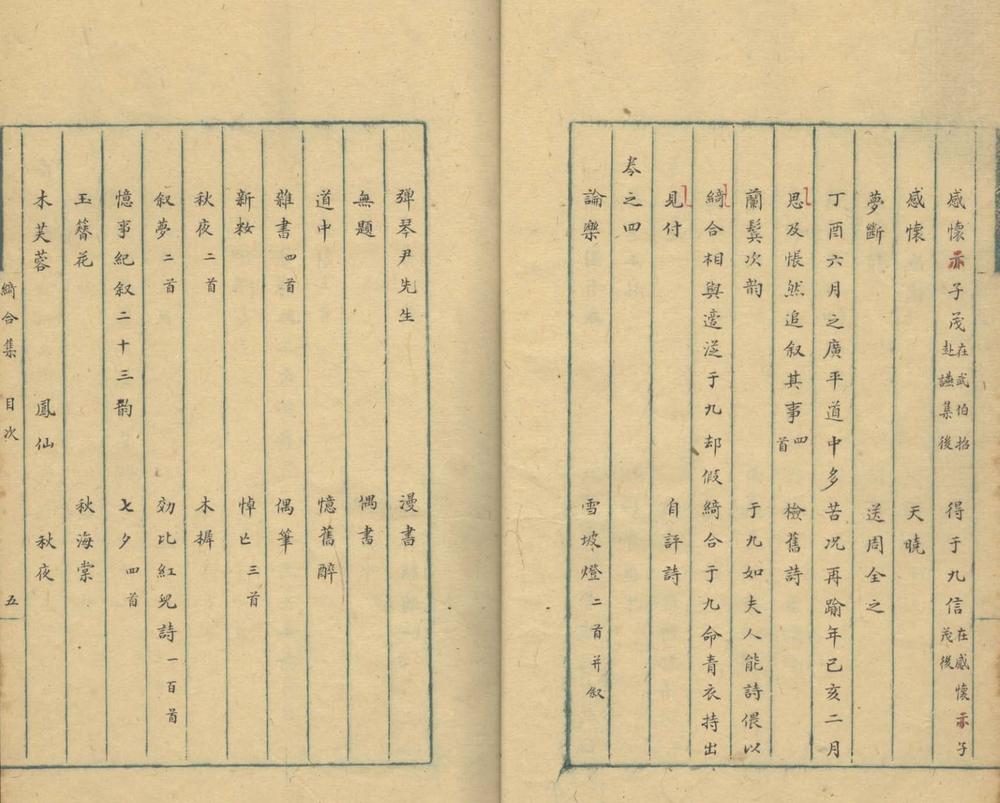 感懷示子茂在武伯招赴讌集後 得于九信在感懷示子茂後
感懷 天曉
夢斷 送周全之
丁酉六月之廣平道中多苦況再踰年已亥二月
思及悵然追叙其事四首 檢舊詩
蘭鬓次韵 于九如夫人能詩偎以
綺合相與遼送于九却假綺合于九命青衣持出
見付 自評詩
卷之四
論樂 雪坡燈二首并叙
彈琴尹先生 漫書
無題 偶書
道中 憶舊醉
雜書四首 偶筆
新敉 悼亡三首
秋夜二首 木樨
叙夢二首 効比紅兒詩一百首
憶事紀叙二十三韵 七夕四首
玉簪花 秋海棠
木芙蓉 鳳仙 秋夜
綺合集 目次 五